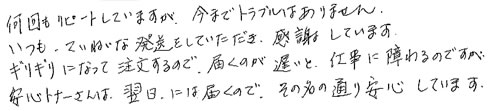 何回もリピートしていますが、今までトラブルはありません。
いつも、ていねいな発送をしていただき、感謝しています。
ギリギリになって注文するので、届くのが遅いと、仕事に障わるのですが、
安心トナーさんは、翌日、には届くので、その名の通り安心しています。